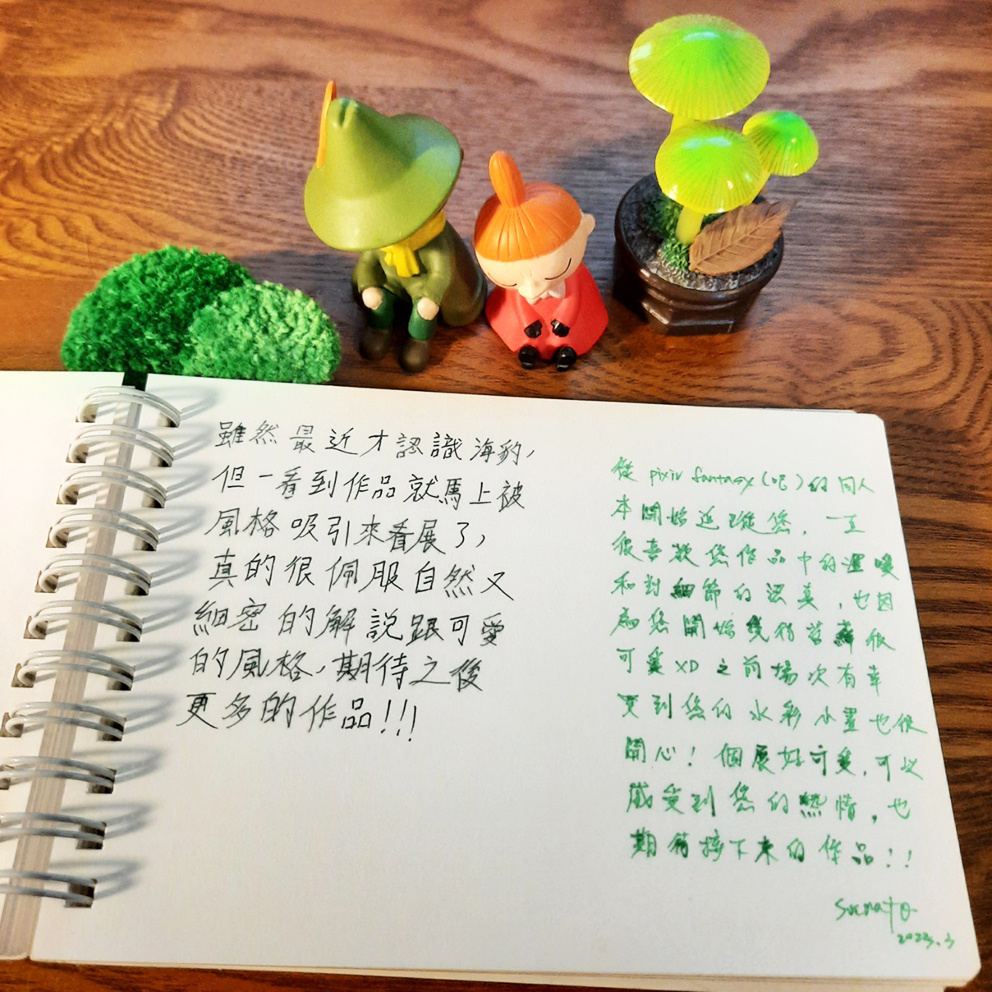 雖然最近才認識海豹,
但一看到作品就馬上被
風格吸引來看展了,
真的很佩服自然又
細密的解說跟可愛
的風格,期待之後
更多的作品!!!
從 pixiv fantasy(吧)的同人
本開始追蹤您,一直
很喜歡您作品中的溫暖
和對細節的認真,也因
為您開始覺得苔蘚很
可愛 XD 之前場次有幸
買到您的水彩小畫也很
開心!個展好可愛,可以
感受到您的熱情,也
期待接下來的作品!!
2023.3